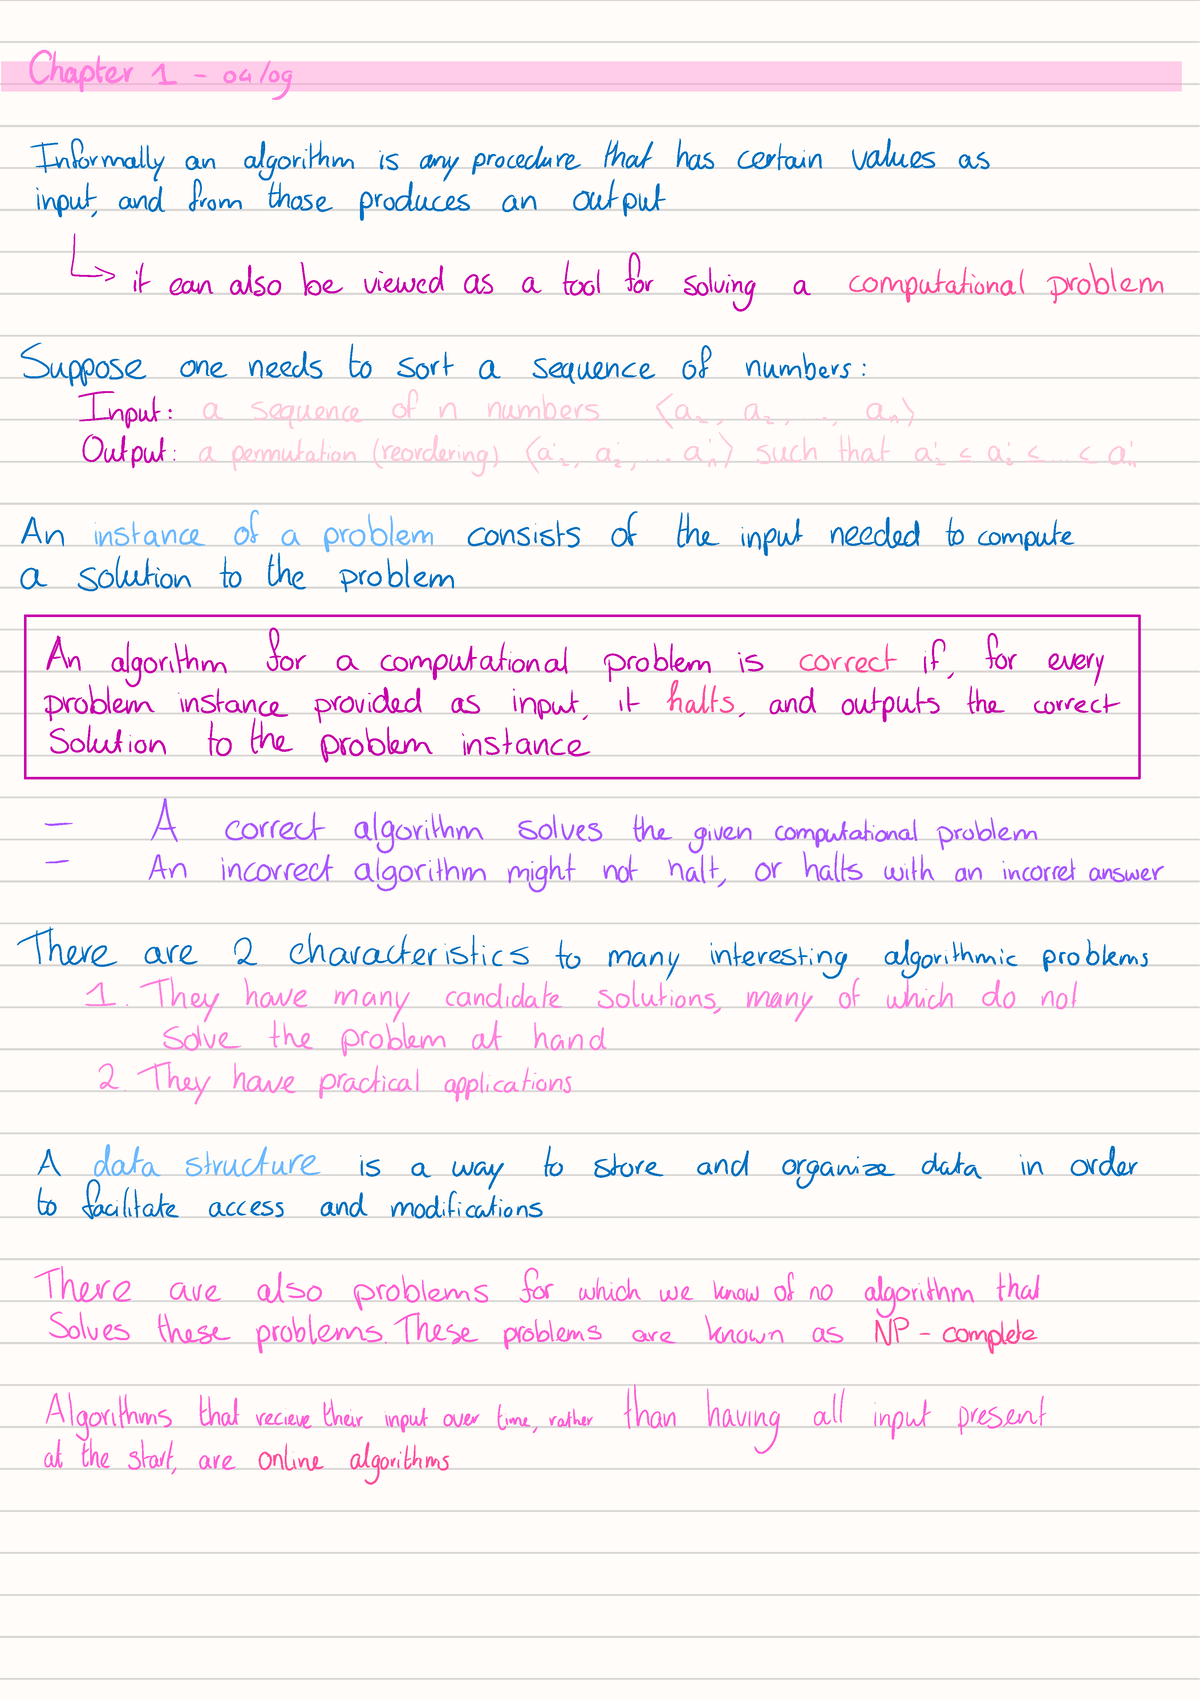 Chapter 1 - 04/09
Informally an algorithm is any procedure that has certain values as
input, and from those produces an output
↳ it can also be viewed as a tool for solving a computational problem
Suppose one needs to sort a sequence of numbers:
Input: a sequence of n numbers ⟨a₁, a₂, ..., aₙ⟩
Output: a permutation (reordering) ⟨a'₁, a'₂, ... a'ₙ⟩ such that a'₁ ≤ a'₂ ≤ ... ≤ a'ₙ
An instance of a problem consists of the input needed to compute
a solution to the problem
An algorithm for a computational problem is correct if, for every
problem instance provided as input, it halts, and outputs the correct
Solution to the problem instance
- A correct algorithm solves the given computational problem
- An incorrect algorithm might not halt, or halts with an incorret answer
There are 2 characteristics to many interesting algorithmic problems
1. They have many candidate solutions, many of which do not
solve the problem at hand
2. They have practical applications
A data structure is a way to store and organize data in order
to facilitate access and modifications
There are also problems for which we know of no algorithm that
Solves these problems. These problems are known as NP-complete
Algorithms that recieve their input over time, rather than having all input present
at the start, are online algorithms